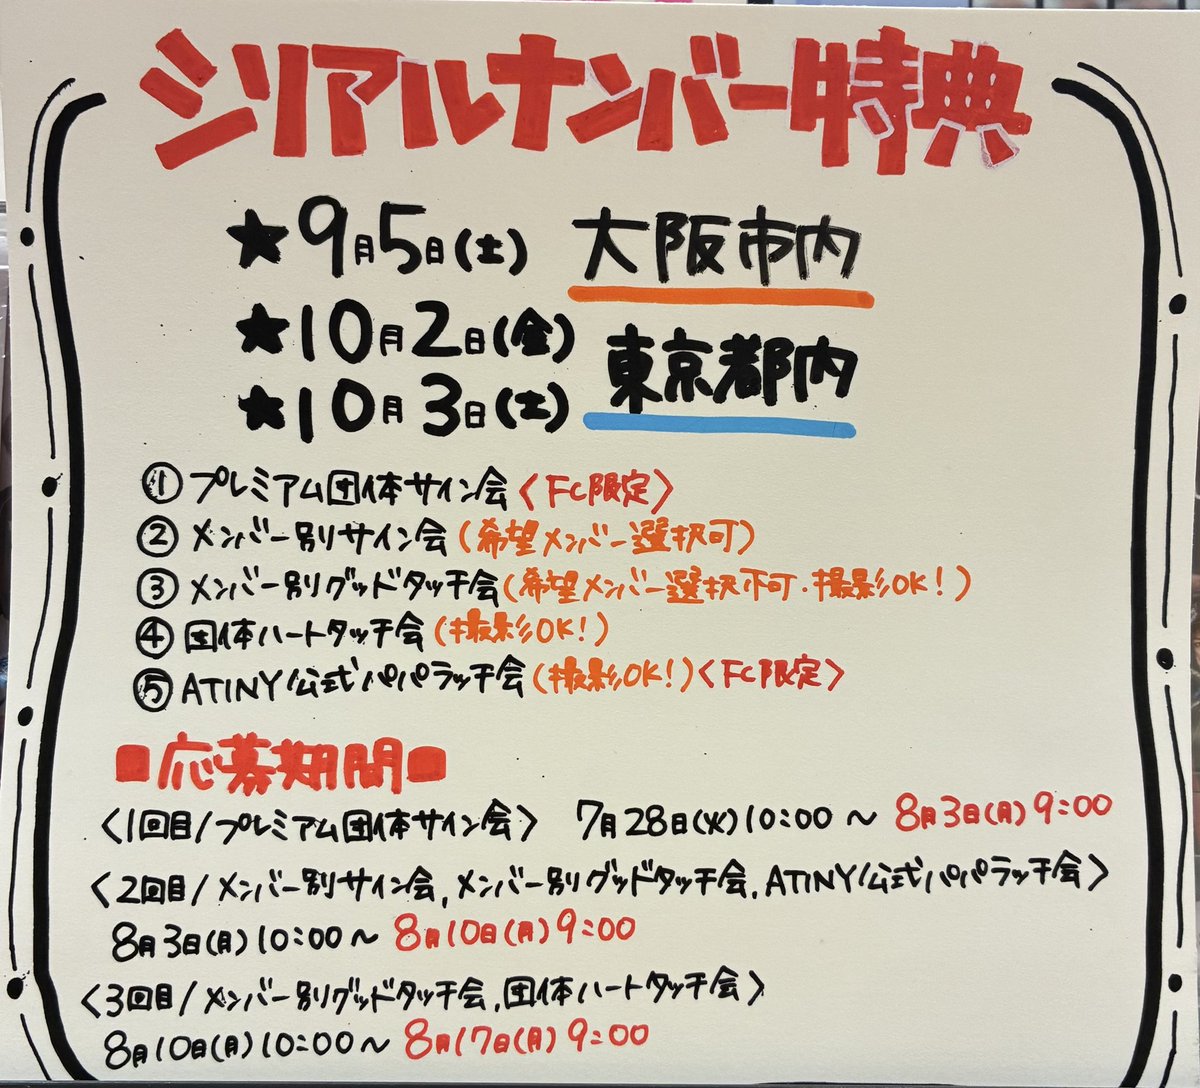 シリアルナンバー特典
★9月5日(土) 大阪市内
★10月2日(金)
★10月3日(土) 東京都内
① プレミアム団体サイン会〈FC限定〉
② メンバー別サイン会(希望メンバー選択可)
③ メンバー別グッドタッチ会(希望メンバー選択不可・撮影OK!)
④ 団体ハートタッチ会(撮影OK!)
⑤ ATINY公式パパラッチ会(撮影OK!)〈FC限定〉
■応募期間■
〈1回目/プレミアム団体サイン会〉 7月28日(火)10:00〜8月3日(月)9:00
〈2回目/メンバー別サイン会,メンバー別グッドタッチ会,ATINY公式パパラッチ会〉
8月3日(月)10:00〜8月10日(月)9:00
〈3回目/メンバー別グッドタッチ会,団体ハートタッチ会〉
8月10日(月)10:00〜8月17日(月)9:00